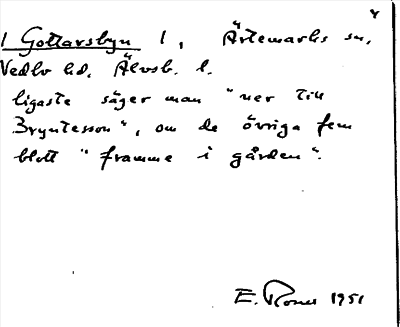 4
1 Gottarsbyn 1, Ärtemarks sn,
Vedbo hd, Älvsb. l.
ligaste säger man "ner till
Bryntesson", om de övriga fem
blott "framme i gården".
E. 1951